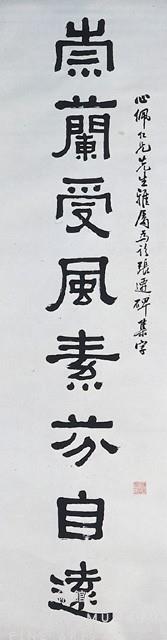 崇蘭受風素芬自遠
心佩仁兄先生雅屬為臨張遷碑集字